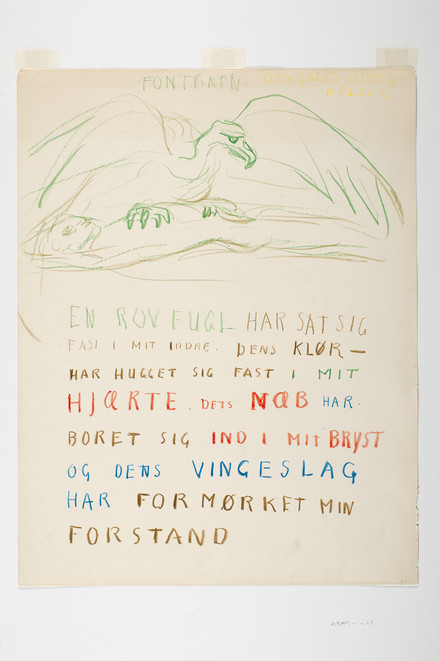 FONTÆNEN
EN ROVFUGL HAR SAT SIG
FAST I MIT INDRE. DENS KLØR—
HAR HUGGET SIG FAST I MIT
HJÆRTE. DETS NÆB HAR.
BORET SIG IND I MIT BRYST
OG DENS VINGESLAG
HAR FORMØRKET MIN
FORSTAND